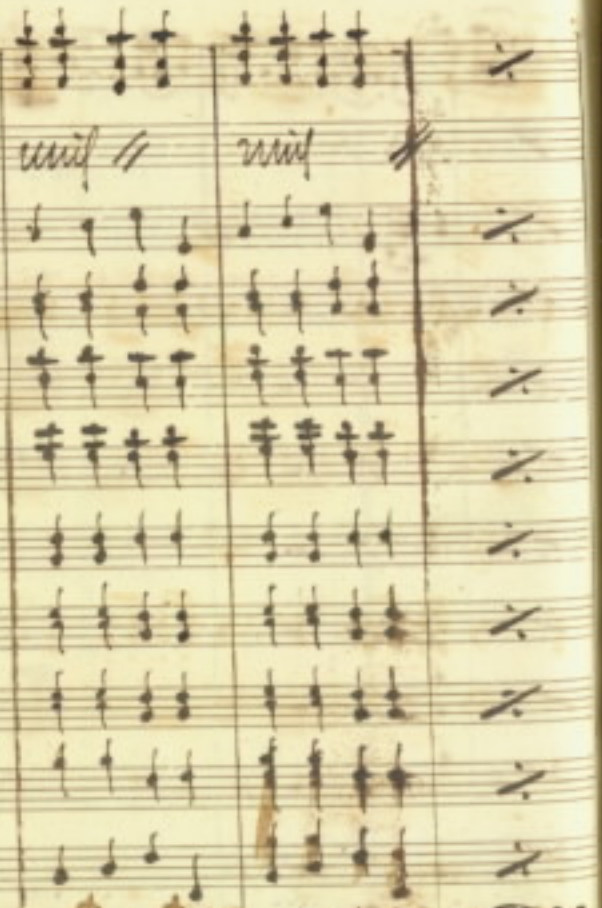 unis unis